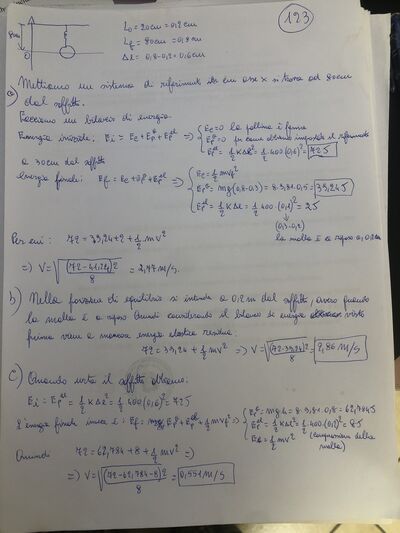 123
80cm
0
L₀ = 20cm = 0,2m
L_f = 80cm = 0,8m
Δl = 0,8-0,2 = 0,6m
Mettiamo un sistema di riferimento in cm asse x si trova ad 80cm
dal soffitto.
a) Facciamo un bilancio di energia.
Energia iniziale: Ei = Ec + Ep + Ep^el => { Ec = 0 la pallina è ferma
Ep^g = 0 per come abbiamo impostato il riferimento
Ep^el = 1/2 K Δl² = 1/2 400 (0,6)² = 72J
a 30cm dal soffitto
energia finale: Ef = Ec + Ep + Ep^el => { Ec = 1/2 mv_f²
Ep^g = mg(0,8-0,3) = 8·9,81·0,5 = 39,24J
Ep^el = 1/2 K Δl = 1/2 400 · (0,1)² = 2J
(0,3-0,2)
la molla è a riposo a 0,2m
Per cui: 72 = 39,24 + 2 + 1/2 mv²
=> V = √(72-41,24)2 / 8 = 2,77 m/s.
b) Nella posizione di equilibrio si intende a 0,2m dal soffitto, ovvero quando
la molla è a riposo. Quindi considerando il bilancio di energia visto
prima viene a mancare energia elastica residua.
72 = 39,24 + 1/2 mv² => V = √(72-39,24)2 / 8 = 2,86 m/s
c) Quando urta il soffitto abbiamo.
Ei = Ep^el = 1/2 K Δl² = 1/2 400 (0,6)² = 72J
L'energia finale invece è: Ef = Ep^g + Ep^el + 1/2 mv_f² => { Ep^g = mgh = 8·9,81·0,8 = 62,784J
Ep^el = 1/2 K Δl² = 1/2 400 (0,2)² = 8J
Ec = 1/2 mv² (compressione della
molla)
Quindi 72 = 62,784 + 8 + 1/2 mv² =>
=> V = √(72-62,784-8)2 / 8 = 0,551 m/s